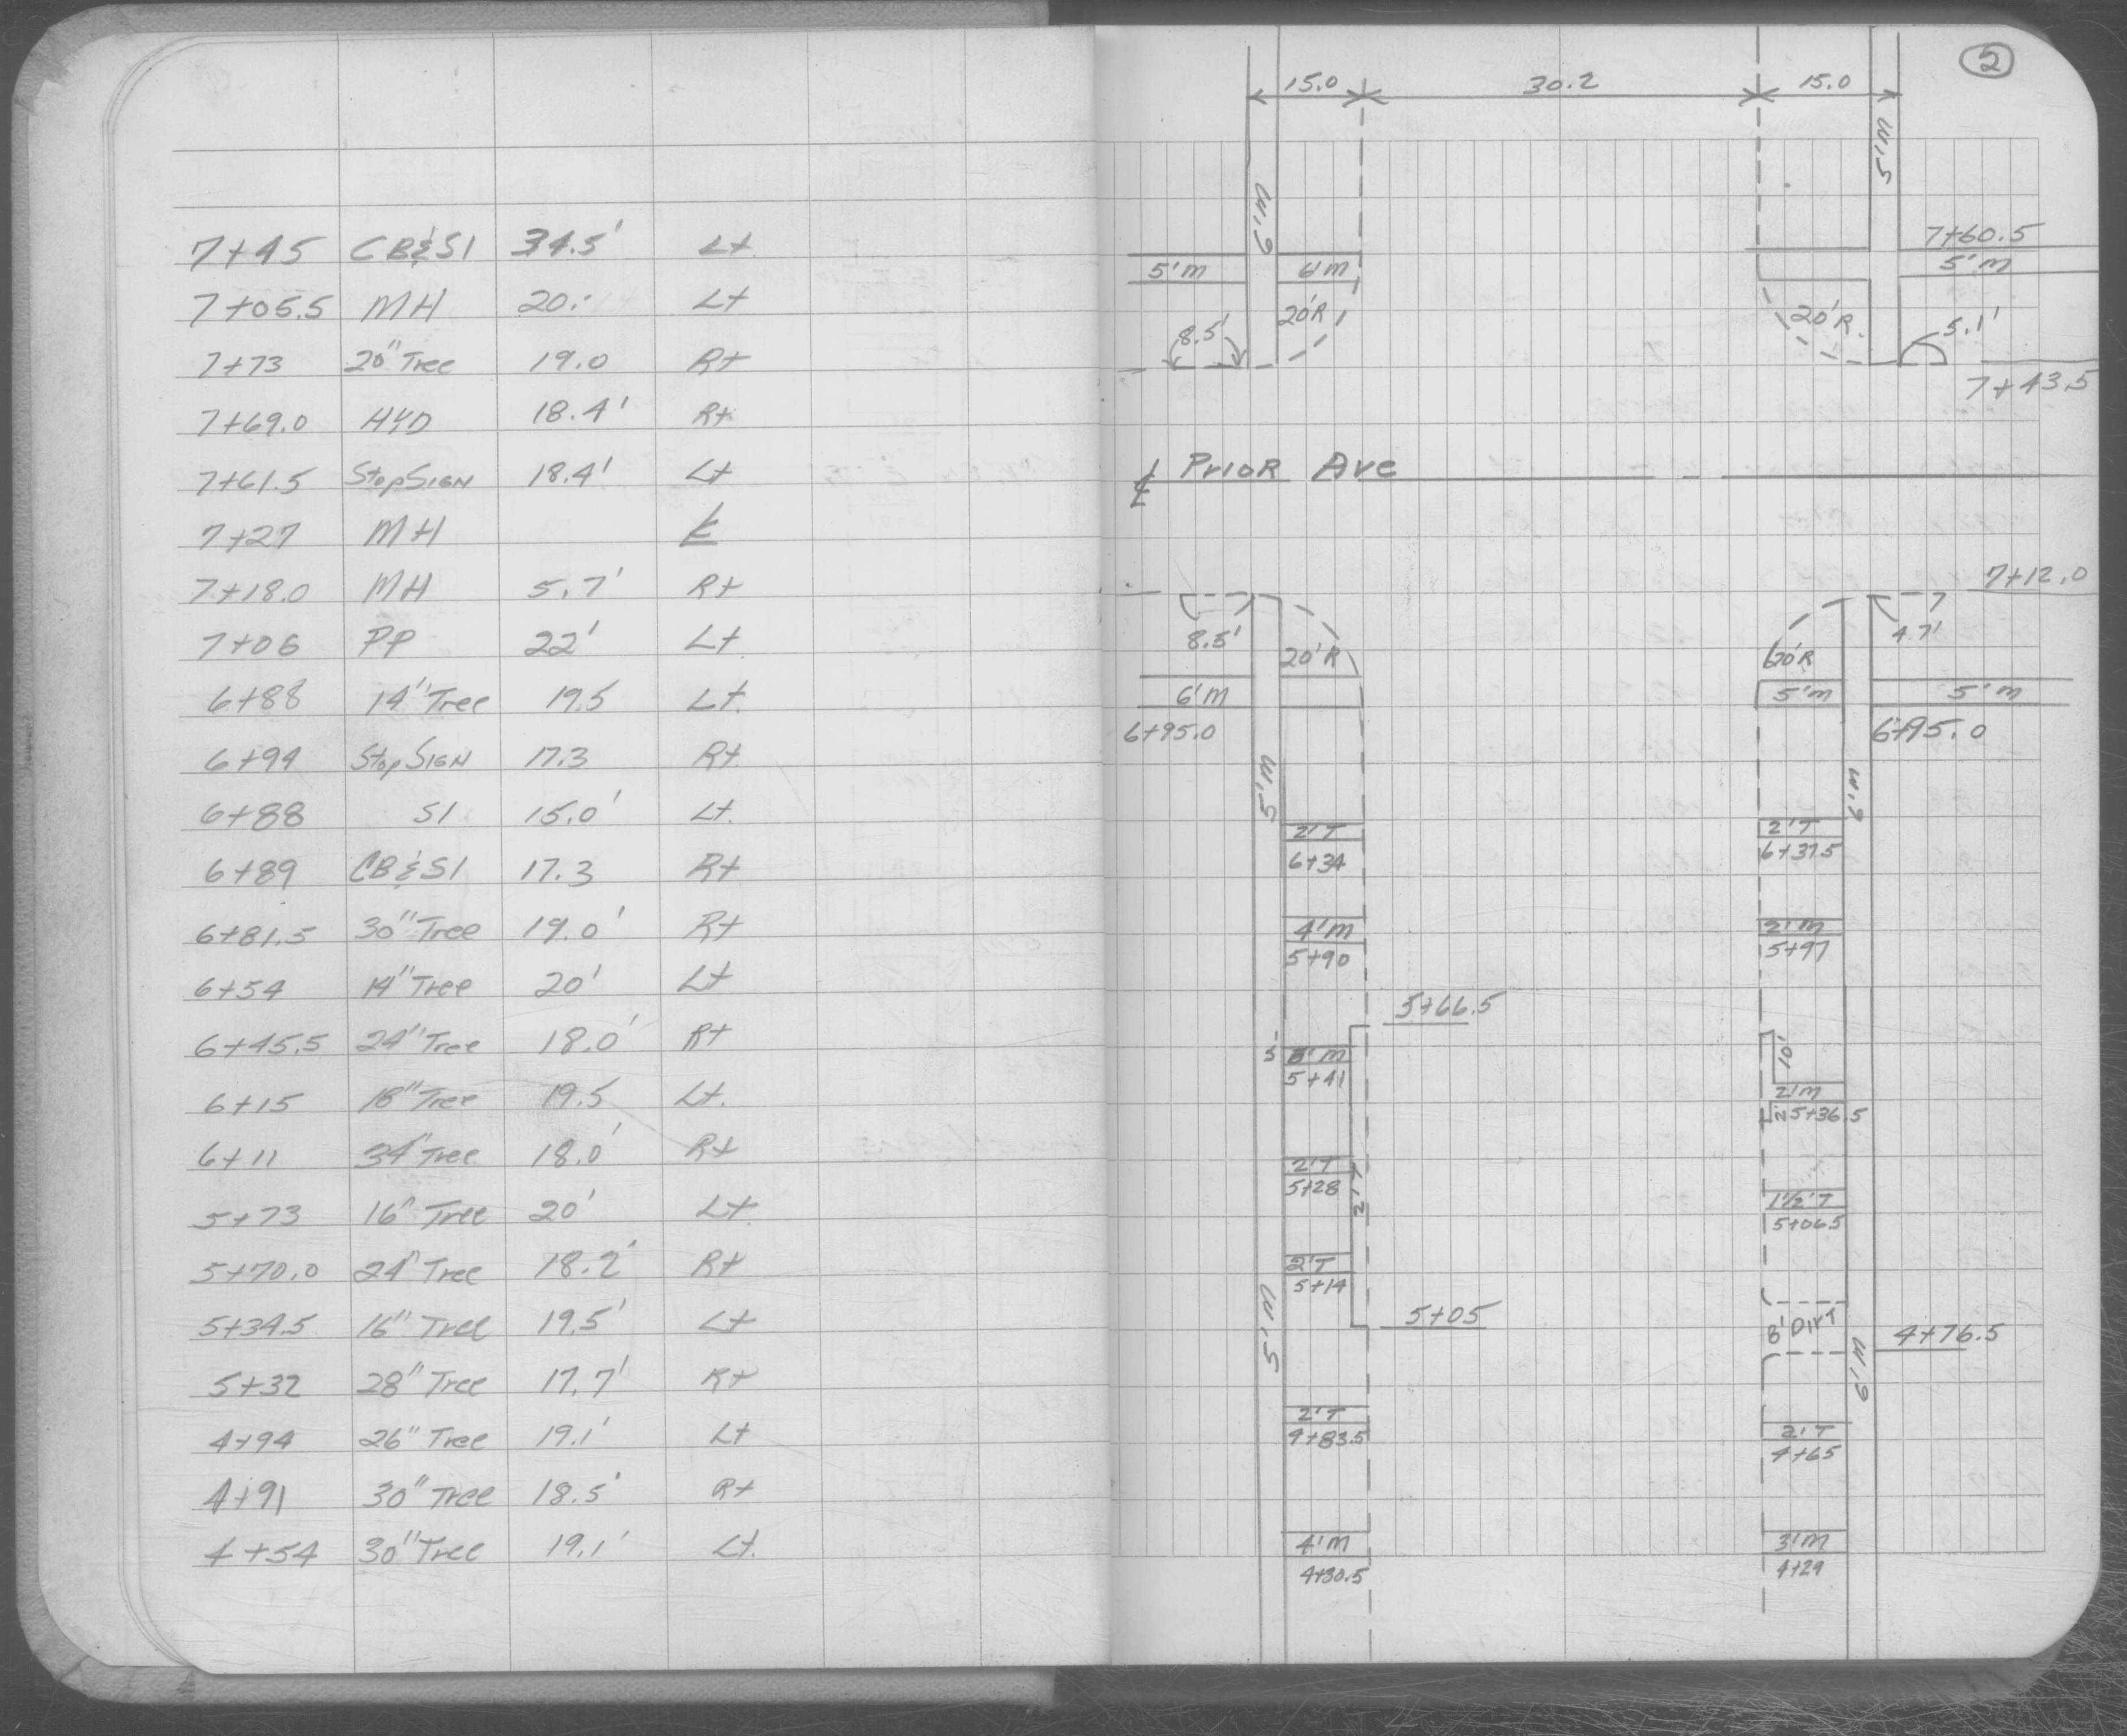 7+45 CB&SI 34.5' Lt
7+05.5 MH 20. Lt
7+73 20" Tree 19.0 Rt
7+69.0 HYD 18.4' Rt
7+61.5 Stop SIGN 18.4' Lt
7+27 MH ℄
7+18.0 MH 5.7' Rt
7+06 PP 22' Lt
6+88 14" Tree 19.5 Lt.
6+94 Stop SIGN 17.3 Rt
6+88 SI 15.0' Lt.
6+89 CB&SI 17.3 Rt
6+81.5 30" Tree 19.0' Rt
6+54 14" Tree 20' Lt
6+45.5 24" Tree 18.0' Rt
6+15 18" Tree 19.5 Lt.
6+11 34" Tree 18.0' Rt
5+73 16" Tree 20' Lt
5+70.0 24" Tree 18.2' Rt
5+34.5 16" Tree 19.5' Lt
5+32 28" Tree 17.7' Rt
4+94 26" Tree 19.1' Lt
4+91 30" Tree 18.5' Rt
4+54 30" Tree 19.1' Lt.
2
15.0 30.2 15.0
5'M
6'M
7+60.5
5'M 6'M 5'M
20'R 20'R.
8.5' 5.1'
7+43.5
℄ PRIOR Ave
7+12.0
8.5' 4.7'
20'R 20'R
6'M 5'M 5'M
6+95.0 6+95.0
5'M 6'M
2'T 2'T
6+34 6+37.5
4'M 2'M
5+90 5+97
5+66.5
5' M 10'
5+41 2'M
2' 5+36.5
2'T
5+28 2'T
1½'T
5+06.5
2'T
5+14
5+05
5'M 8' Dirt 6'M 4+76.5
2'T 2'T
4+83.5 4+65
4'M 3'M
4+30.5 4+29